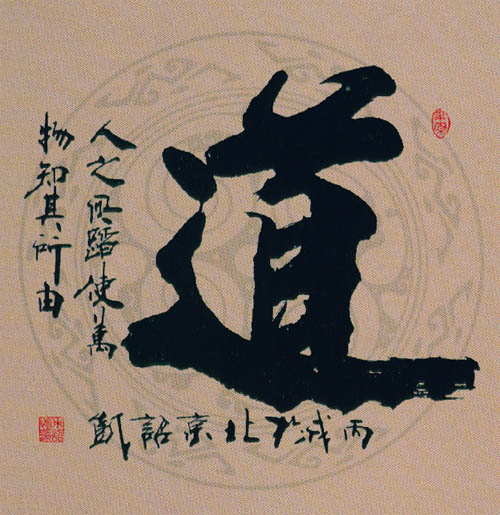 道
人之所蹈使萬
物知其所由
丙戌於北京